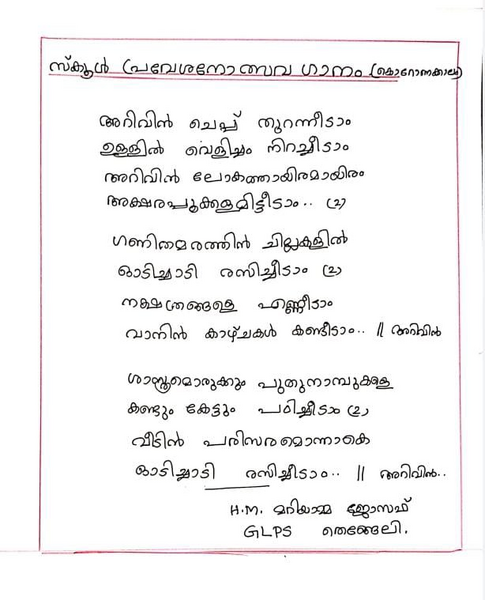 സ്കൂൾ പ്രവേശനോത്സവ ഗാനം (കൊറോണക്കാലം)
അറിവിൻ ചെപ്പ് തുറന്നീടാം
ഉള്ളിൽ വെളിച്ചം നിറച്ചീടാം
അറിവിൻ ലോകത്തായിരമായിരം
അക്ഷരപൂക്കളമിട്ടീടാം.. (2)
ഗണിതമരത്തിൻ ചില്ലകളിൽ
ഓടിച്ചാടി രസിച്ചീടാം (2)
നക്ഷത്രങ്ങളെ എണ്ണീടാം
വാനിൻ കാഴ്ചകൾ കണ്ടീടാം.. || അറിവിൻ
ശാസ്ത്രമൊരുക്കും പുതുനാമ്പുകളെ
കണ്ടും കേട്ടും പഠിച്ചീടാം (2)
വീടിൻ പരിസരമൊന്നാകെ
ഓടിച്ചാടി രസിച്ചീടാം.. || അറിവിൻ..
H.M. മറിയാമ്മ ജോസഫ്
GLPS തെങ്ങേലി.